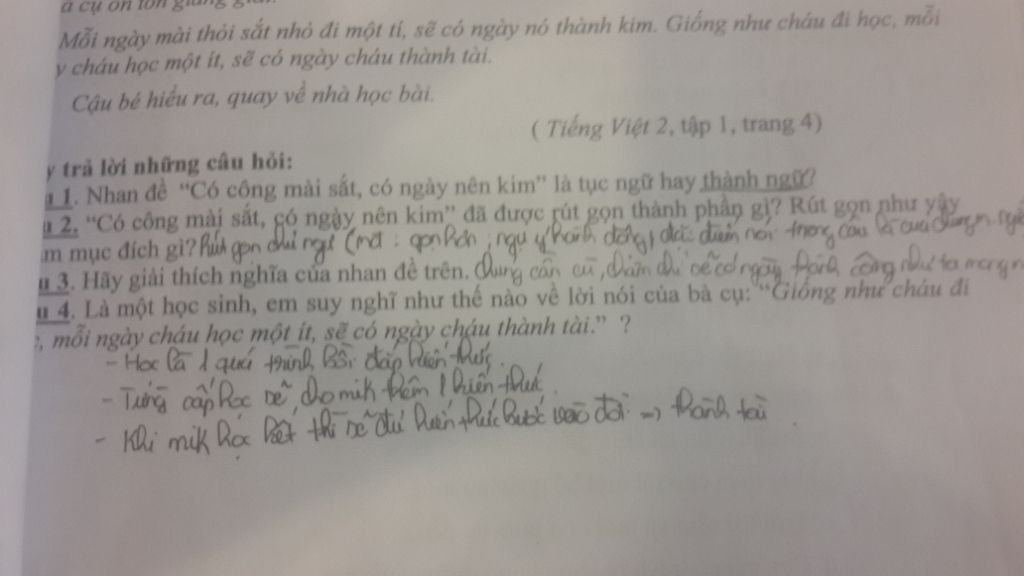 a cụ ôn tồn giảng giải:
Mỗi ngày mài thỏi sắt nhỏ đi một tí, sẽ có ngày nó thành kim. Giống như cháu đi học, mỗi
y cháu học một ít, sẽ có ngày cháu thành tài.
Cậu bé hiểu ra, quay về nhà học bài.
( Tiếng Việt 2, tập 1, trang 4)
y trả lời những câu hỏi:
u 1. Nhan đề "Có công mài sắt, có ngày nên kim" là tục ngữ hay thành ngữ?
u 2. "Có công mài sắt, có ngày nên kim" đã được rút gọn thành phần gì? Rút gọn như vậy
m mục đích gì? Rút gọn chủ ngữ (mđ : gọn hơn, ngụ ý hành động, đặc điểm nói trong câu là của chung m
u 3. Hãy giải thích nghĩa của nhan đề trên. Chung cần cù, chăm chỉ sẽ có ngày thành công như ta mong
u 4. Là một học sinh, em suy nghĩ như thế nào về lời nói của bà cụ: "Giống như cháu đi
, mỗi ngày cháu học một ít, sẽ có ngày cháu thành tài." ?
- Học là 1 quá trình bồi đắp kiến thức
- Từng cấp học sẽ cho mik thêm 1 kiến thức
- Khi mik học hết thì sẽ đủ kiến thức bước vào đời => thành tài